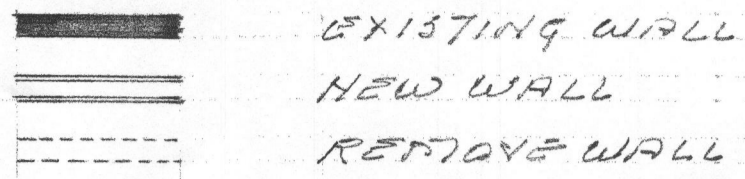 EXISTING WALL
NEW WALL
REMOVE WALL